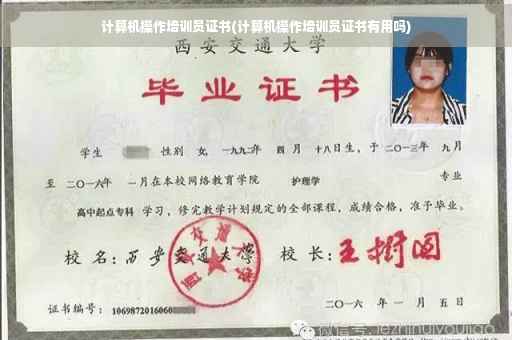 计算机操作培训员证书(计算机操作培训员证书有用吗)
西安交通大学
毕业证书
学生 性别 女, 一九九二年 四月 十八日生, 于二〇一三年 九月
至 二〇一六年 一月在本校网络教育学院 护理学 专业
高中起点专科 学习, 修完教学计划规定的全部课程, 成绩合格, 准予毕业。
校名: 西安交通大学 校长: 王树国
西安交通大学
证书编号: 1069872016060
二〇一六年 一月 五日
微信号: jezhihuiyoujiao